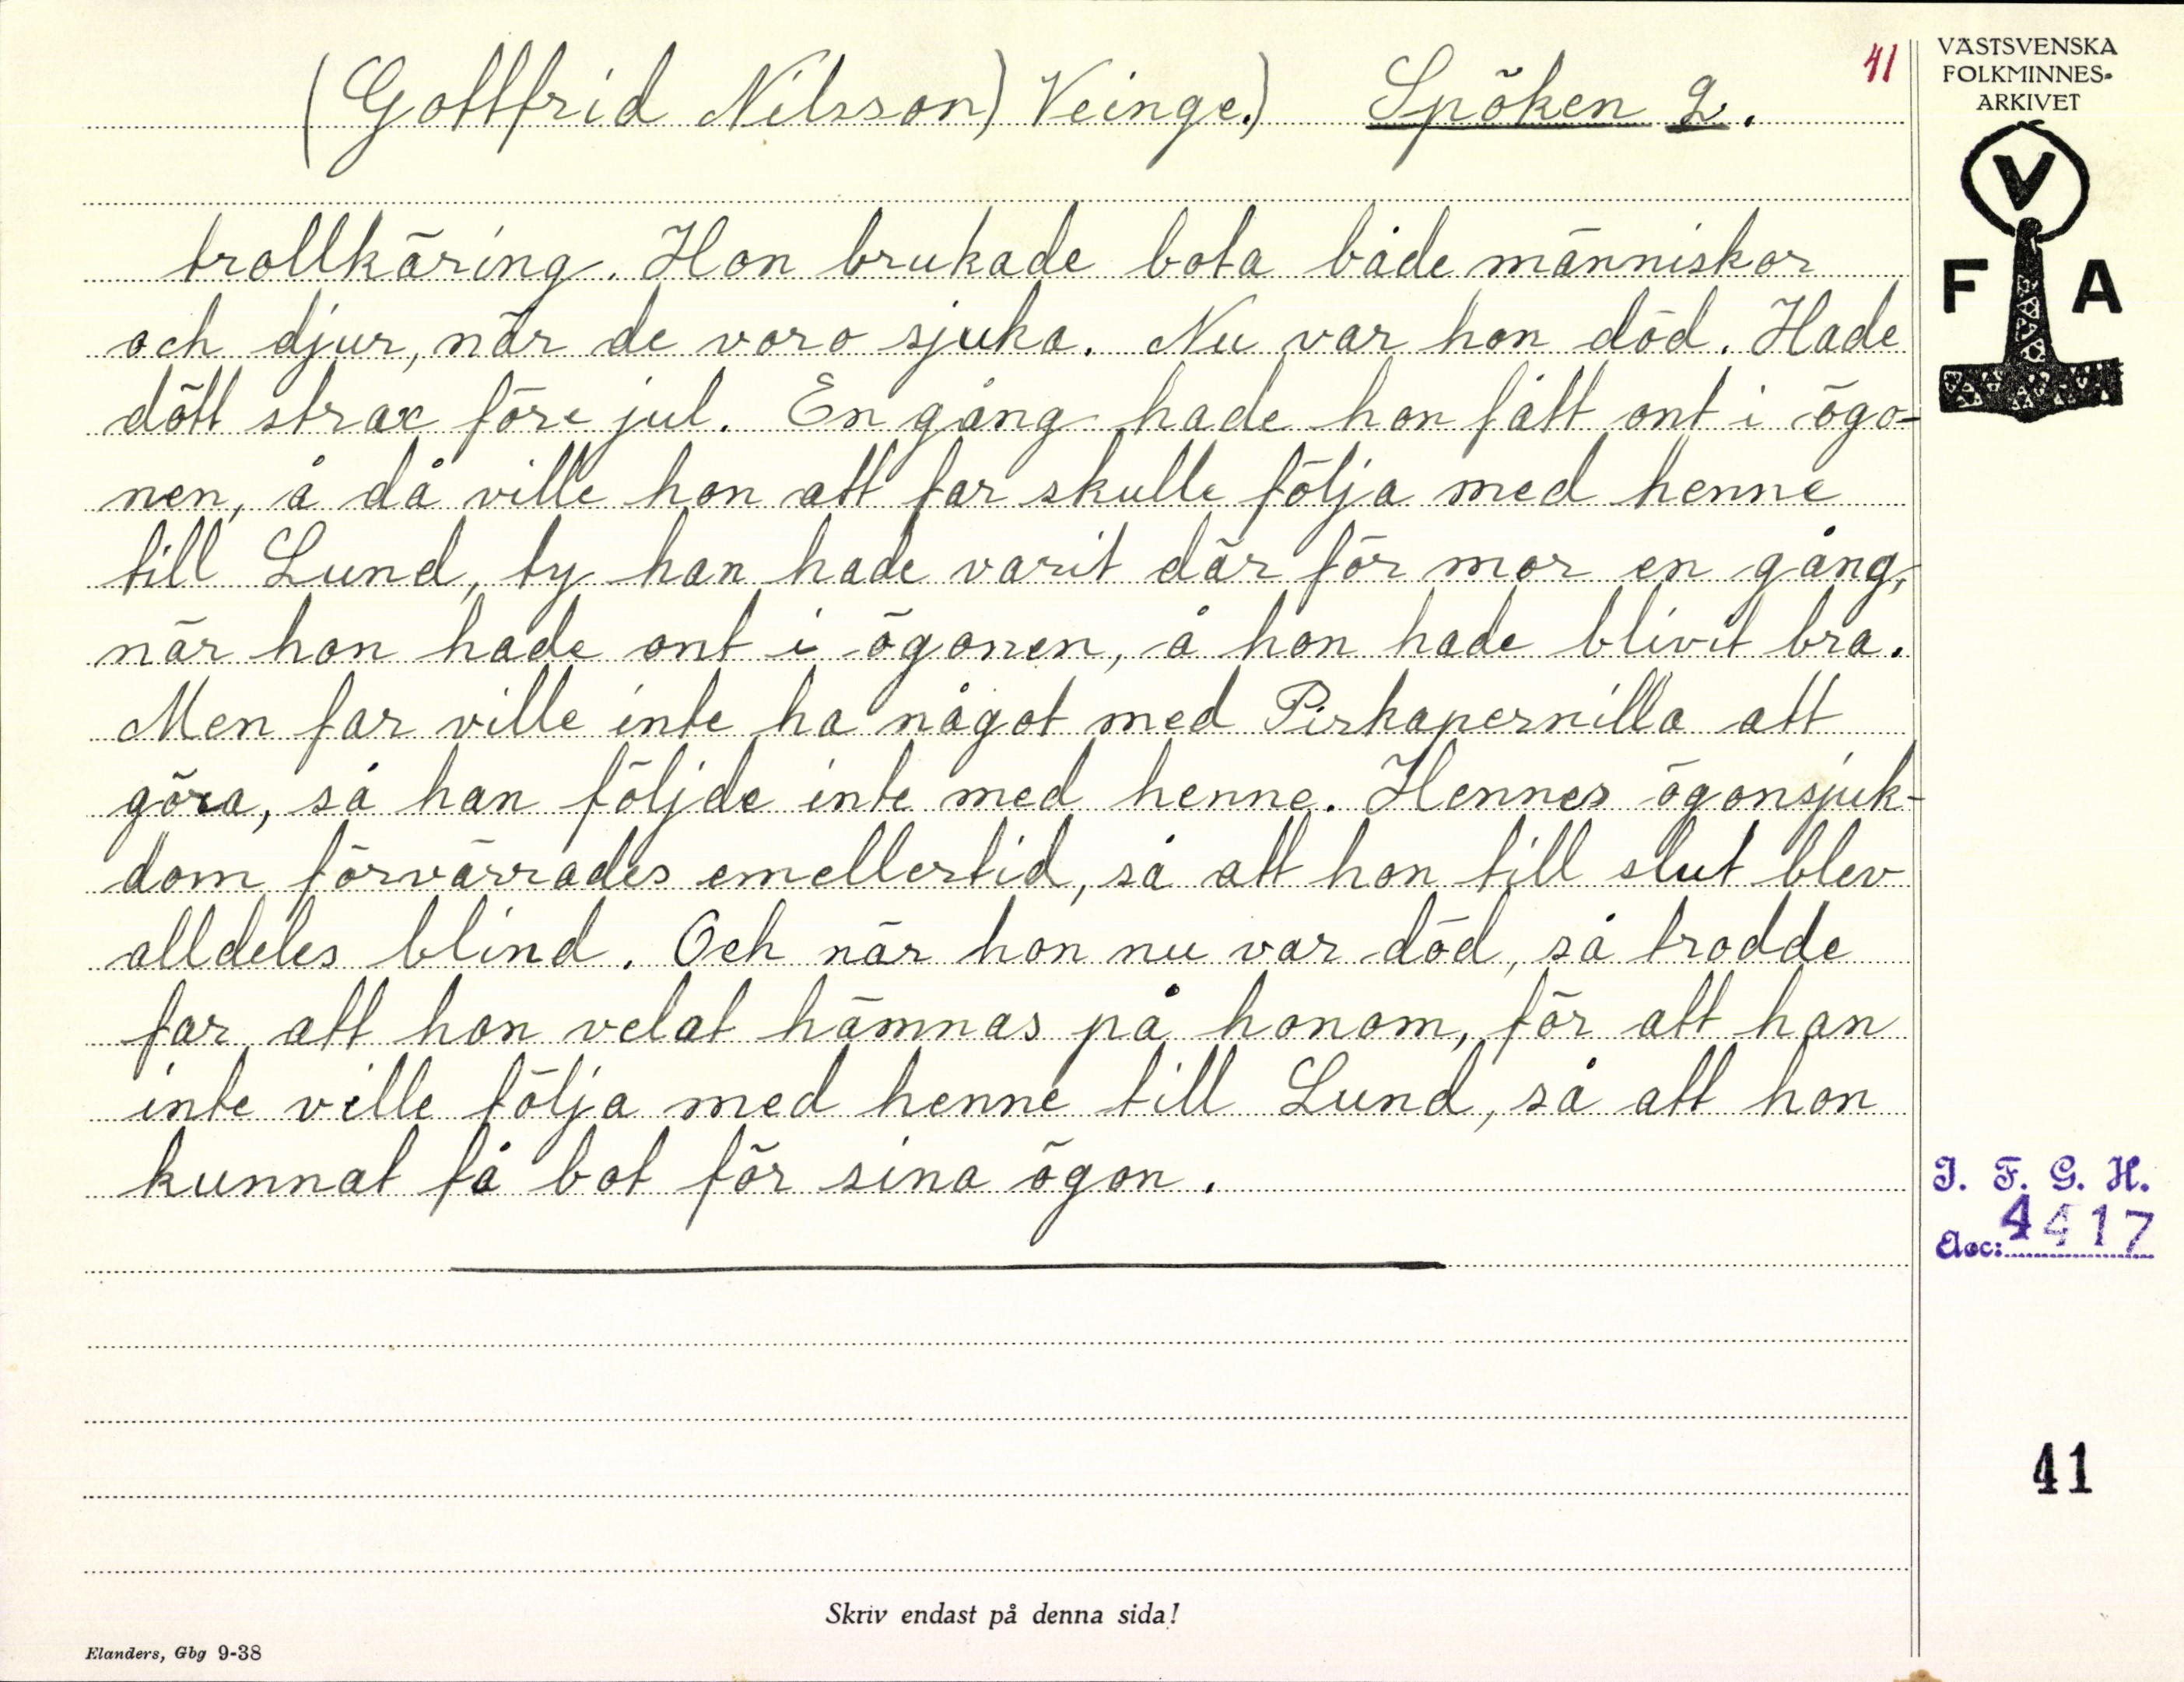 (Gottfrid Nilsson) Veinge.) Spöken 2.
41
trollkäring. Hon brukade bota både människor
och djur, när de voro sjuka. Nu var hon död. Hade
dött strax före jul. En gång hade hon fått ont i ögo-
nen, å då ville hon att far skulle följa med henne
till Lund, ty han hade varit där för mor en gång,
när hon hade ont i ögonen, å hon hade blivit bra.
Men far ville inte ha något med Pirkapernilla att
göra, så han följde inte med henne. Hennes ögonsjuk-
dom förvärrades emellertid, så att hon till slut blev
alldeles blind. Och när hon nu var död, så trodde
far att hon velat hämnas på honom, för att han
inte ville följa med henne till Lund, så att hon
kunnat få bot för sina ögon.
Skriv endast på denna sida!
Elanders, Gbg 9-38
VÄSTSVENSKA
FOLKMINNES-
ARKIVET
V
F A
I. F. G. H.
Acc: 4417
41